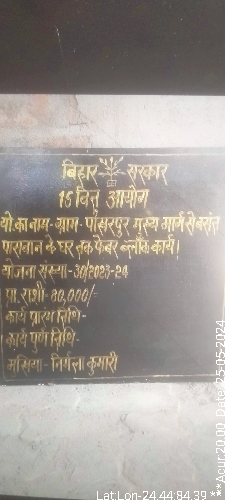 बिहार सरकार
15 वित्त आयोग
यो.का नाम- ग्राम- पांसरपुर मुख्य मार्ग से बसंत
पासवान के घर तक पेवर ब्लौक कार्य।
योजना संख्या- 30/2023-24
प्रा. राशी- 80,000/-
कार्य प्रारंभ तिथि-
कार्य पुर्ण तिथि-
मुखिया- निर्मला कुमारी
Lat Lon-24 44 84.39
***Acur 20.00 Date: 25-05-2024